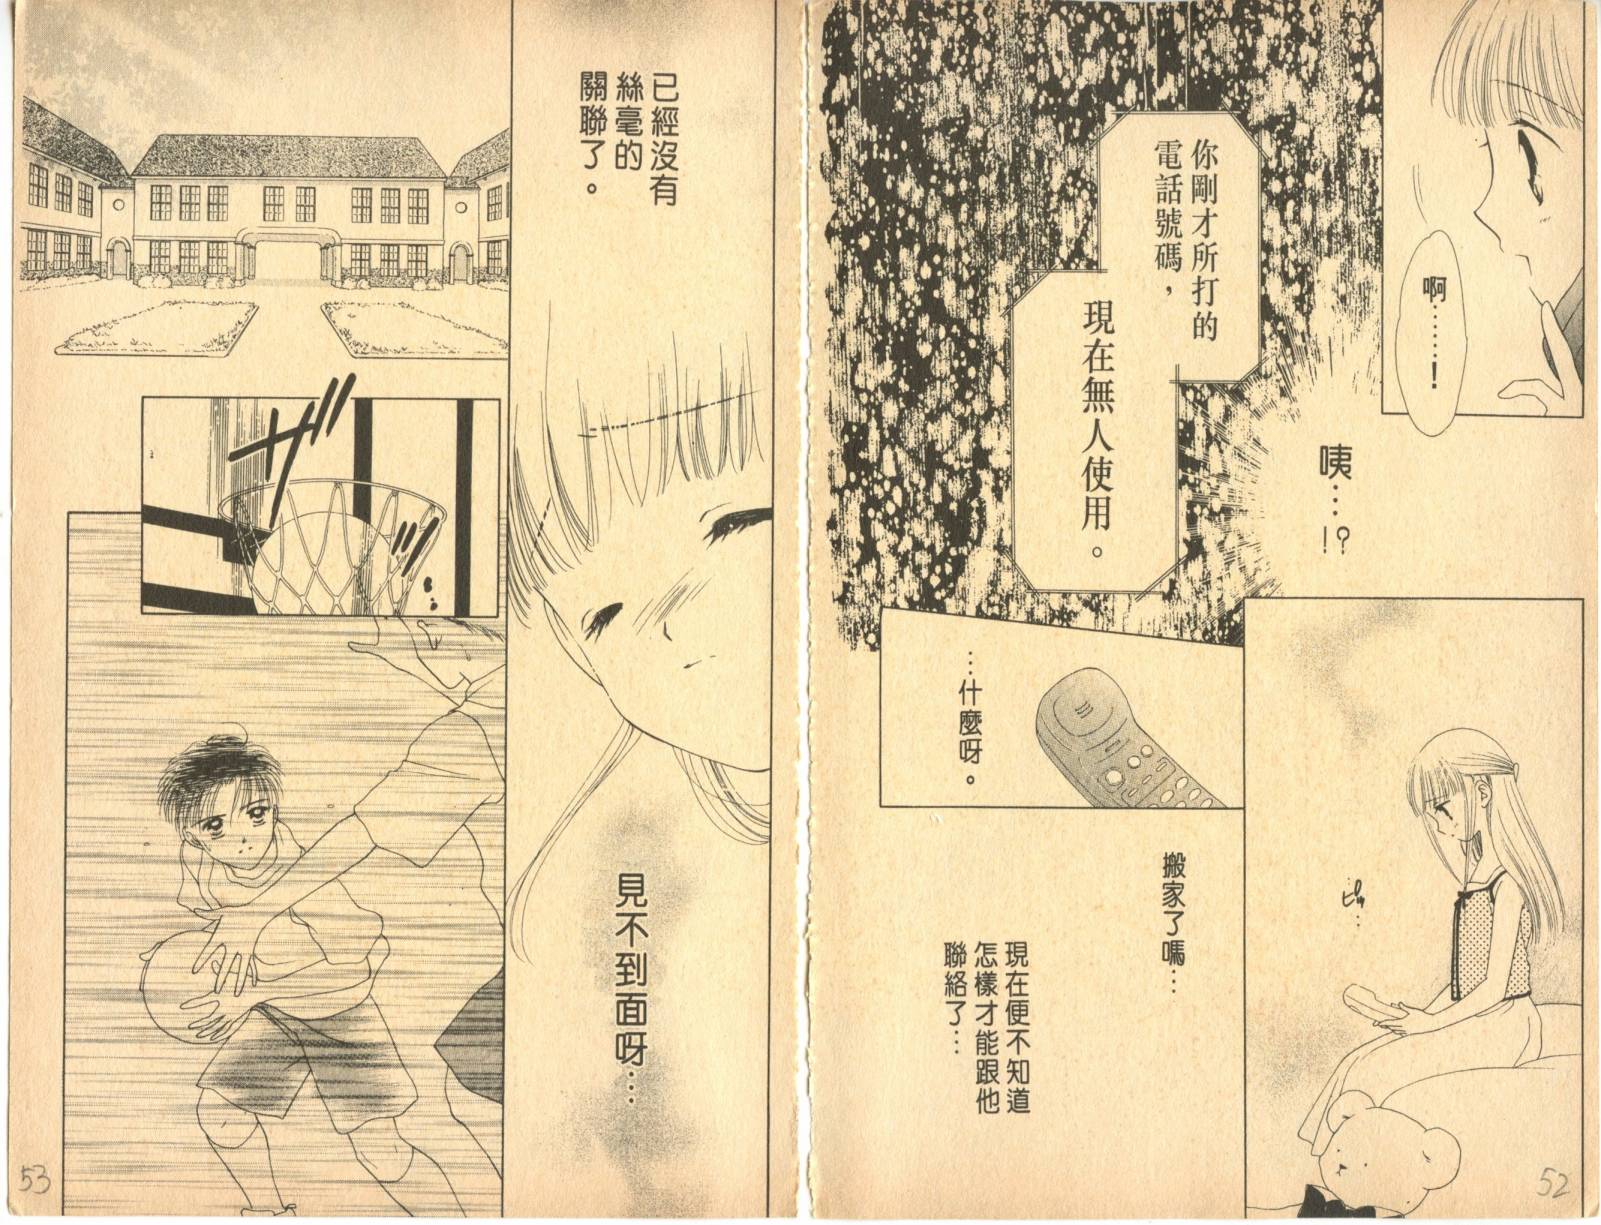 啊……！
你剛才所打的
電話號碼，
現在無人使用。
咦…!?
…什麼呀。
搬家了嗎…
現在便不知道
怎樣才能跟他
聯絡了…
52
已經沒有
絲毫的
關聯了。
見不到面呀…
53